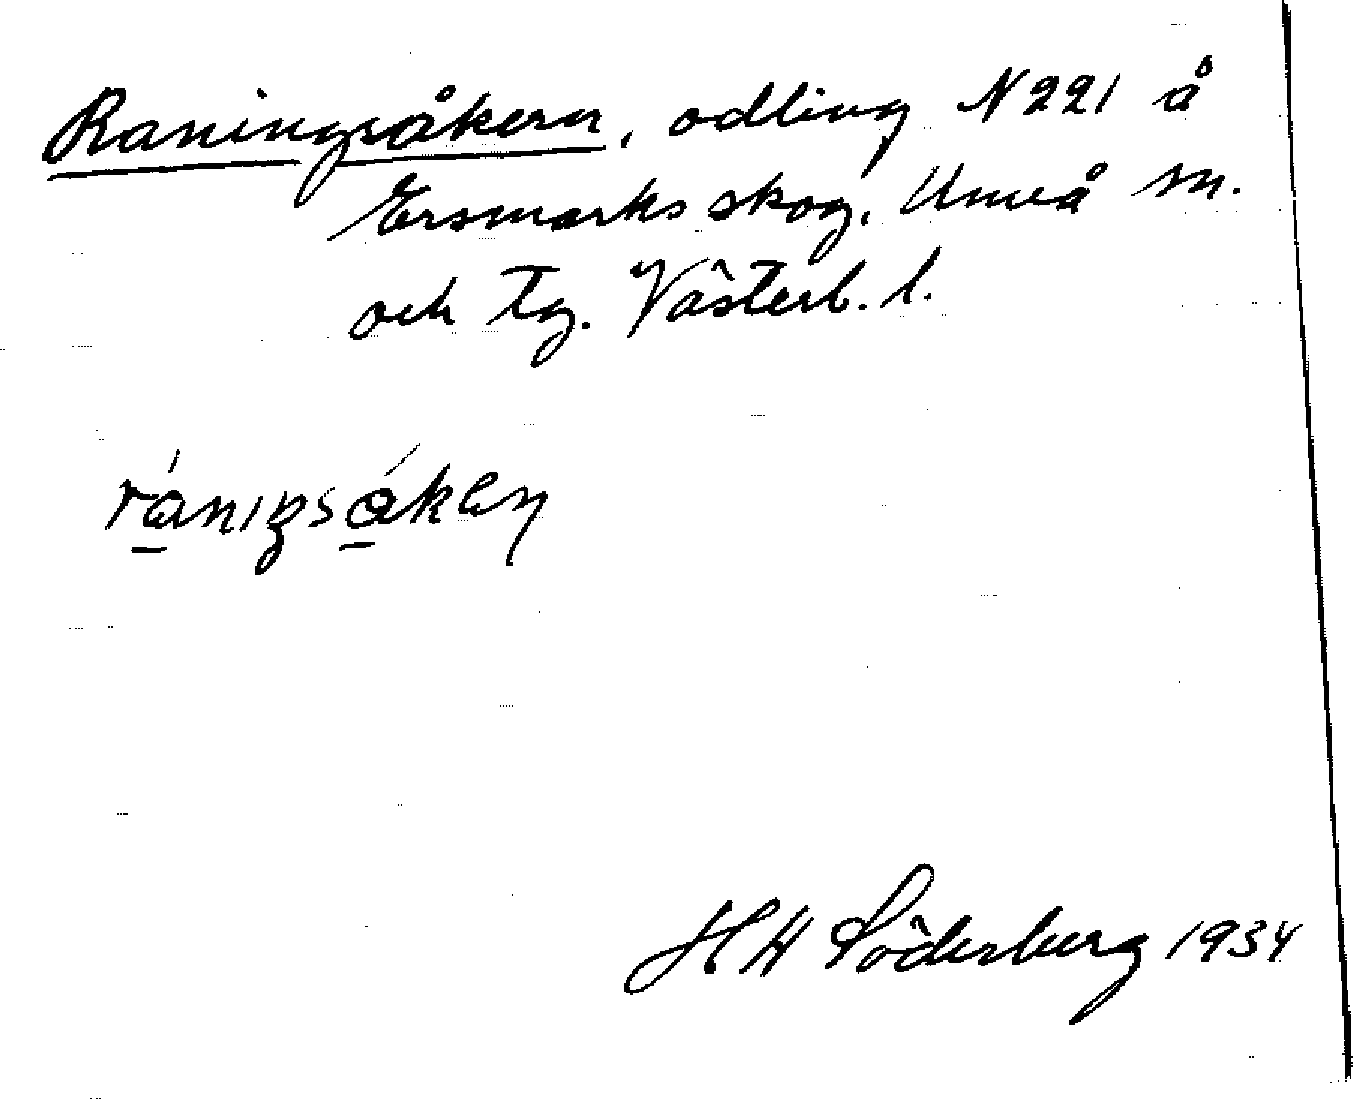 Raningsåkern, odling N 221 å
Ersmarks skog, Umeå sn.
och tg. Västerb. l.
rániŋsákən
HW Söderberg 1934